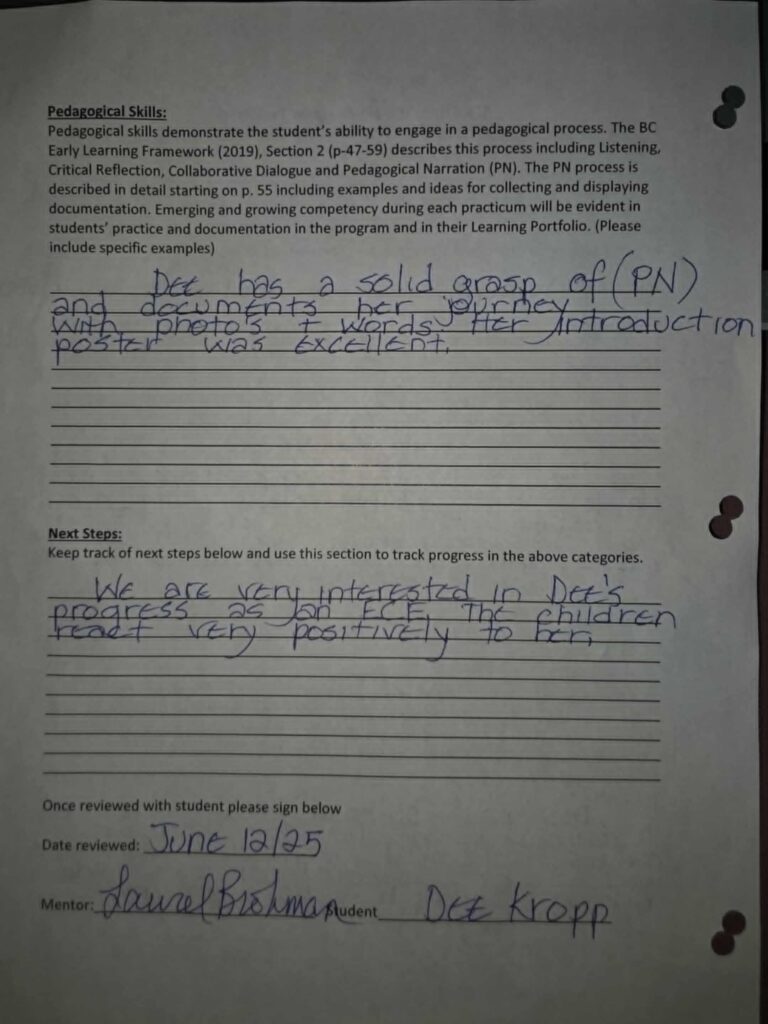 Pedagogical Skills:
Pedagogical skills demonstrate the student's ability to engage in a pedagogical process. The BC
Early Learning Framework (2019), Section 2 (p-47-59) describes this process including Listening,
Critical Reflection, Collaborative Dialogue and Pedagogical Narration (PN). The PN process is
described in detail starting on p. 55 including examples and ideas for collecting and displaying
documentation. Emerging and growing competency during each practicum will be evident in
students' practice and documentation in the program and in their Learning Portfolio. (Please
include specific examples)
Dee has a solid grasp of (PN)
and documents her journey
with photo's + words. Her introduction
poster was excellent.
Next Steps:
Keep track of next steps below and use this section to track progress in the above categories.
We are very interested in Dee's
progress as an ECE. The children
react very positively to her.
Once reviewed with student please sign below
Date reviewed: June 12/25
Mentor: Laurel Brohman Student Dee Kropp